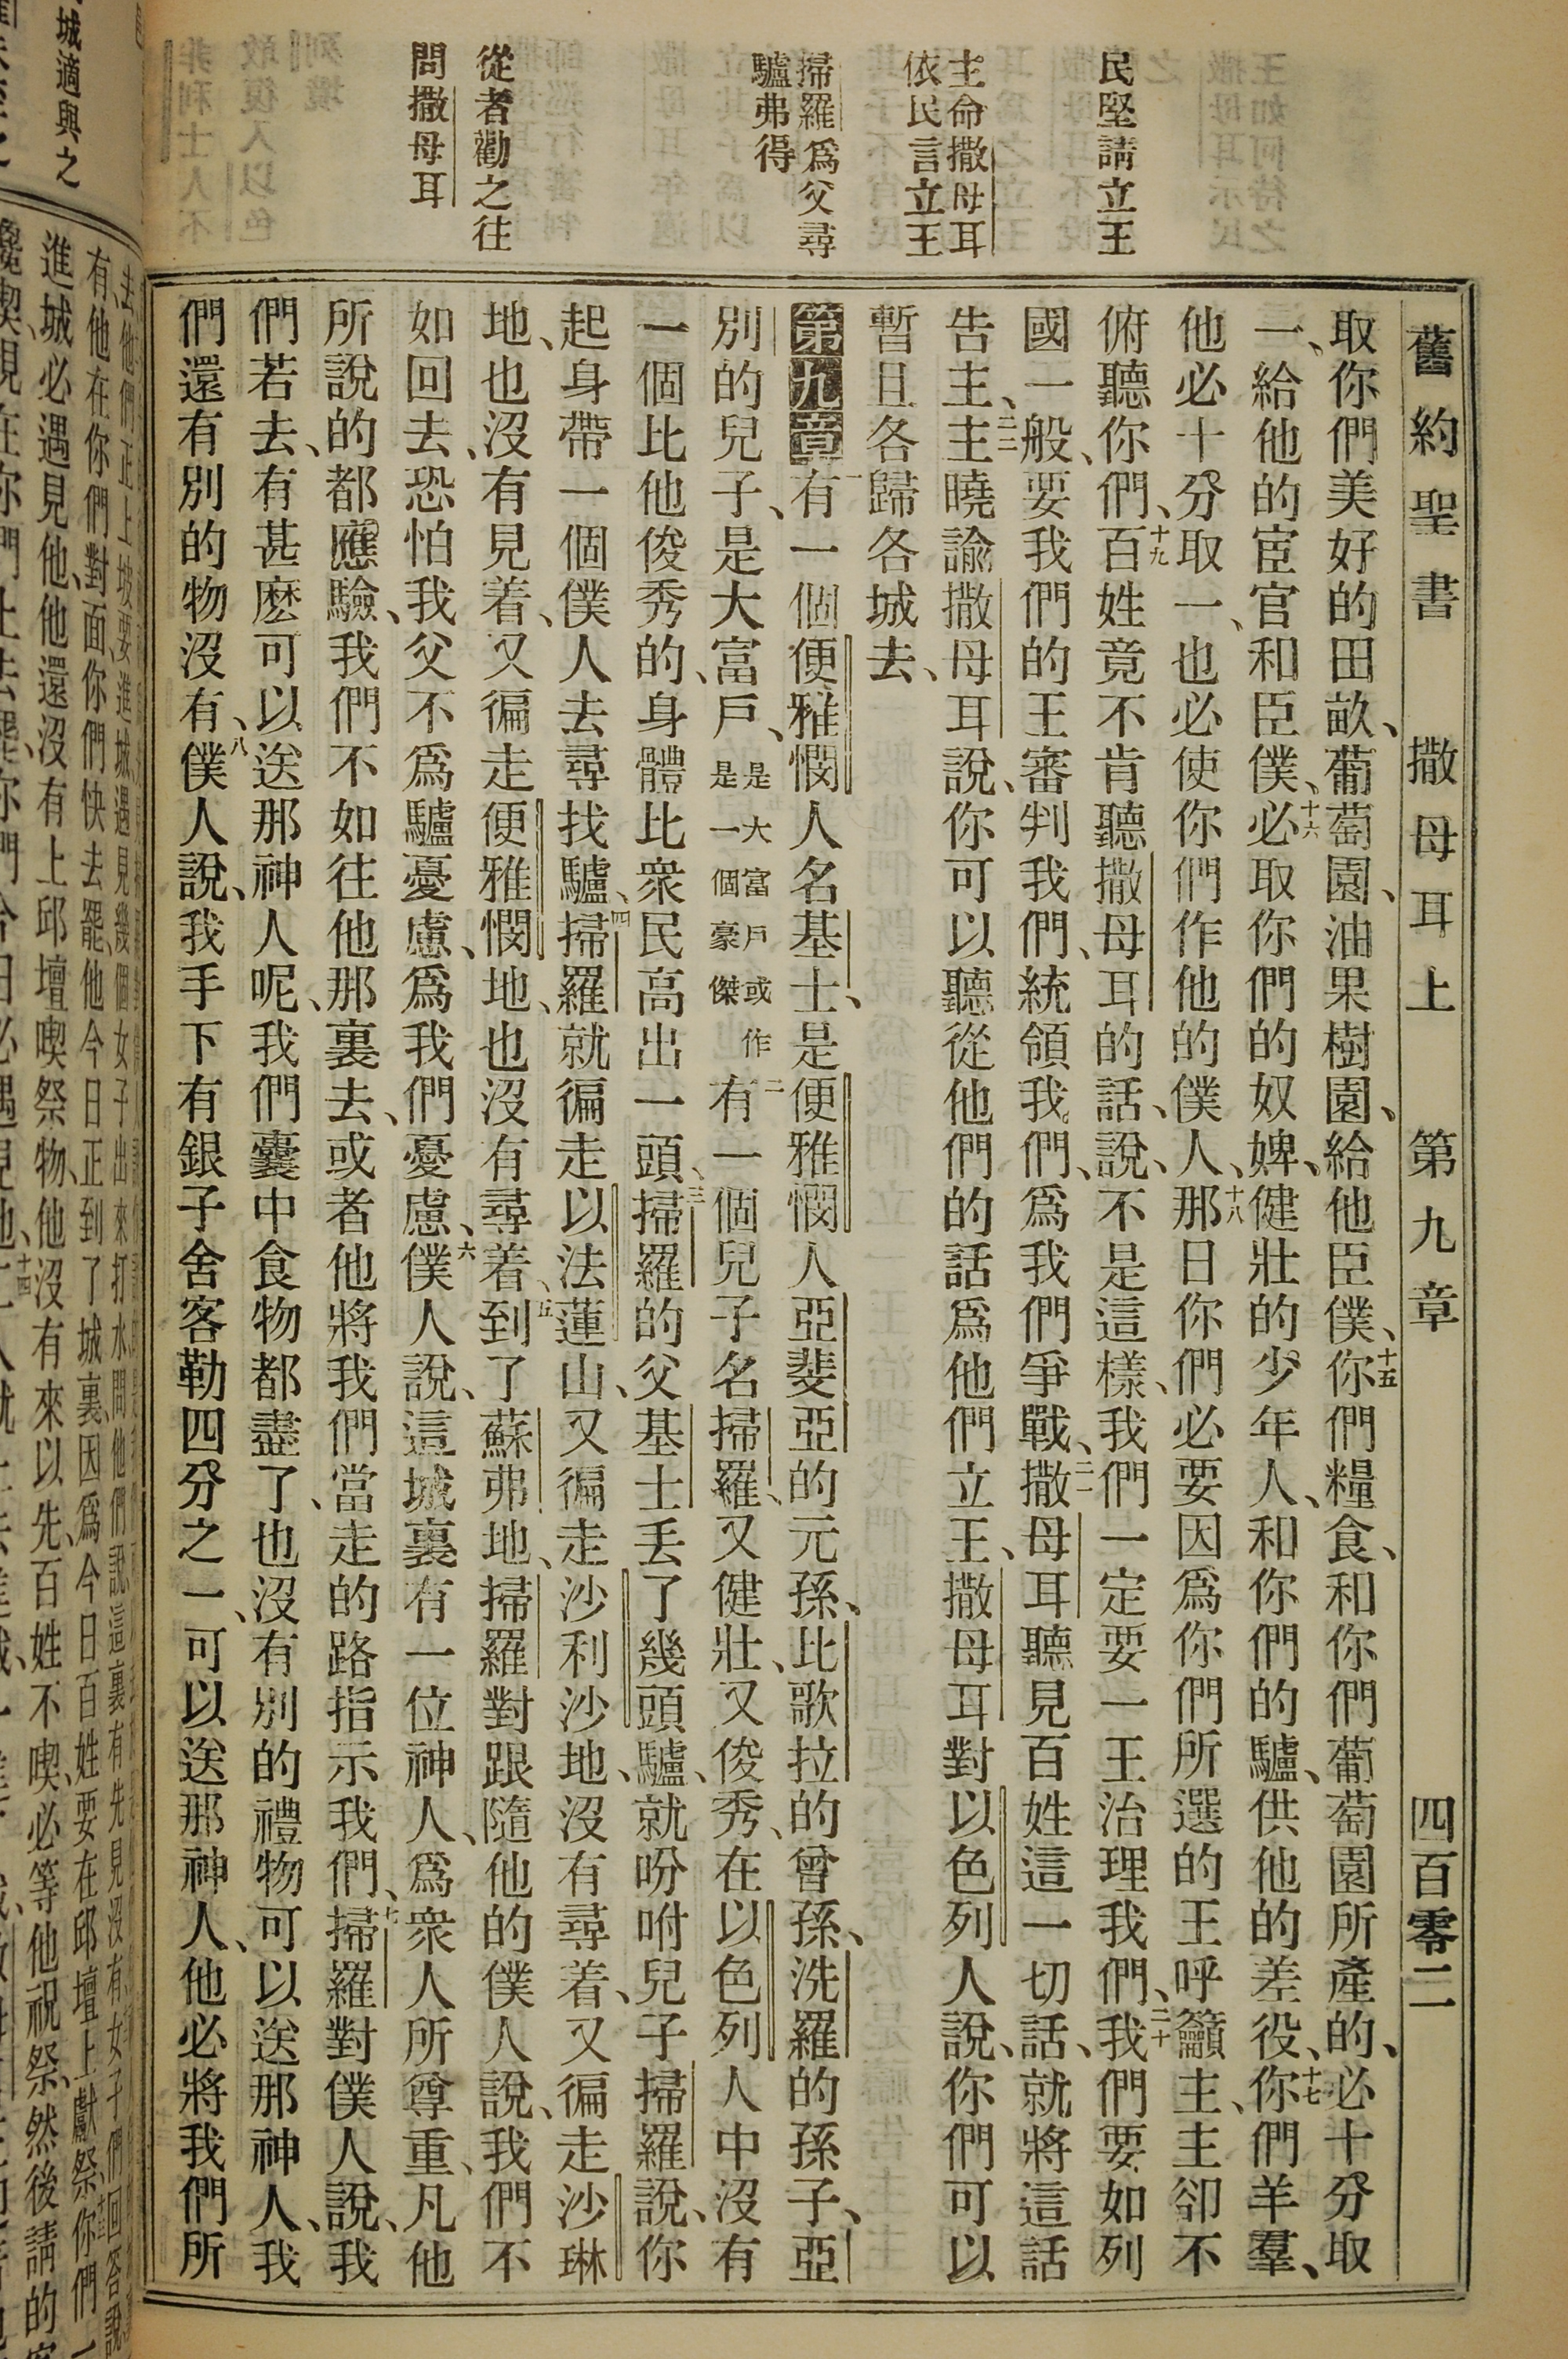 民堅請立王
主命撒母耳
依民言立王
掃羅爲父尋
驢弗得
從者勸之往
問撒母耳
舊約聖書 撒母耳上 第九章 四百零二
取你們美好的田畝、葡萄園、油果樹園、給他臣僕、十五你們糧食、和你們葡萄園所產的、必十分取
一、給他的宦官和臣僕、十六必取你們的奴婢、健壯的少年人、和你們的驢、供他的差役、十七你們羊羣、
他必十分取一、也必使你們作他的僕人、十八那日你們必要因爲你們所選的王呼籲主、主卻不
俯聽你們、十九百姓竟不肯聽撒母耳的話、說、不是這樣、我們一定要一王治理我們、二十我們要如列
國一般、要我們的王審判我們、統領我們、爲我們爭戰、二一撒母耳聽見百姓這一切話、就將這話
告主、二二主曉諭撒母耳說、你可以聽從他們的話爲他們立王、撒母耳對以色列人說、你們可以
暫且各歸各城去、
第九章 一有一個便雅憫人名基士、是便雅憫人亞斐亞的元孫、比歌拉的曾孫、洗羅的孫子、亞
別的兒子、是大富戶、是大富戶或作是一個豪傑二有一個兒子名掃羅、又健壯、又俊秀、在以色列人中沒有
一個比他俊秀的、身體比衆民高出一頭、三掃羅的父基士丟了幾頭驢、就吩咐兒子掃羅說、你
起身帶一個僕人去尋找驢、四掃羅就徧走以法蓮山、又徧走沙利沙地、沒有尋着、又徧走沙琳
地、也沒有見着、又徧走便雅憫地、也沒有尋着、五到了蘇弗地、掃羅對跟隨他的僕人說、我們不
如回去、恐怕我父不爲驢憂慮、爲我們憂慮、六僕人說、這城裏有一位神人、爲衆人所尊重、凡他
所說的都應驗、我們不如往他那裏去、或者他將我們當走的路指示我們、七掃羅對僕人說、我
們若去、有甚麽可以送那神人呢、我們囊中食物都盡了、也沒有別的禮物可以送那神人、我
們還有別的物沒有、八僕人說、我手下有銀子舍客勒四分之一、可以送那神人、他必將我們所
城適與之
有、他在你們對面、你們快去罷、他今日正到了城裏、因爲今日百姓要在邱壇上獻祭、
進城必遇見他、他還沒有上邱壇喫祭物、他沒有來以先、百姓不喫、必等他祝祭、然後請的